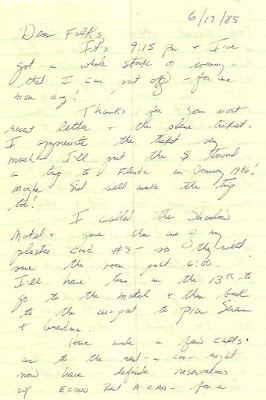 6/17/85
Dear Folks,
It's 9:15 pm + I've
got a whole stack of
that I can put off - for one
more day!
Thanks for your most
recent letter + the ticket.
I appreciate the ticket very
much. I'll put the $ toward
a trip to Florida in January 1986!
Maybe will make the trip
too!
I called The Shadow
Motel + gave them one of my
plastic card #'s - so they will
save the room past 6:00.
I'll have time on the 13th to
go to the motel + then back
to the airport to pick
+ Grandma.
Have made a few calls
as to the rent-a-car - right
now have definite reservations
w/ ECONO Rent A CAR - for a